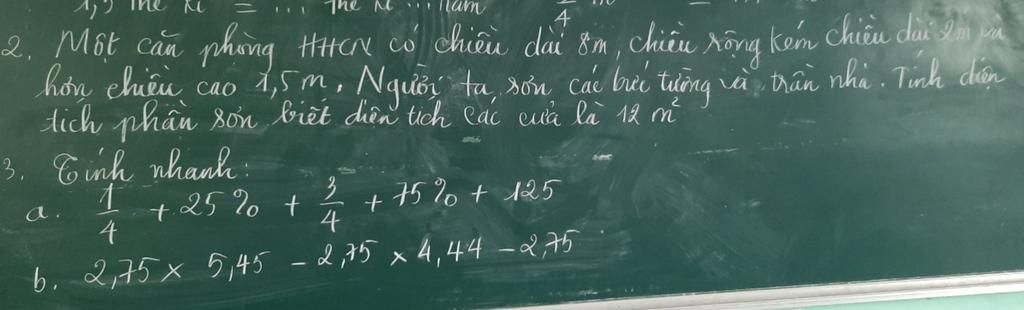 1,5 thế kỉ = ... thế kỉ ... năm
2. Một căn phòng HHCN có chiều dài 8m, chiều rộng kém chiều dài 2m và
hơn chiều cao 1,5m. Người ta sơn các bức tường và trần nhà. Tính diện
tích phần sơn biết diện tích các cửa là 12 m²
3. Tính nhanh:
a. 1/4 + 25% + 3/4 + 75% + 125
b. 2,75 × 5,45 - 2,75 × 4,44 - 2,75